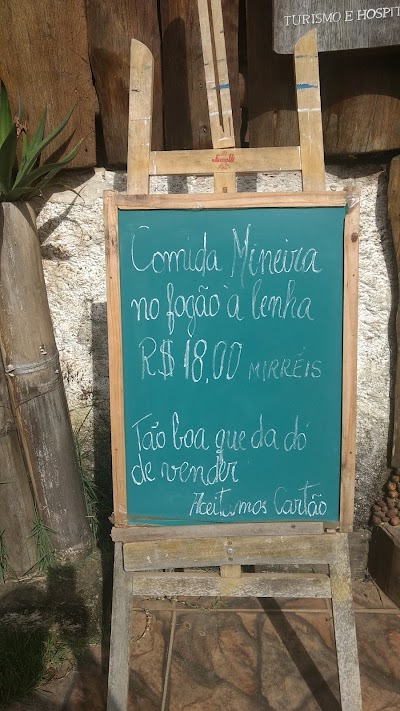 TURISMO E HOSPIT
Comida Mineira
no fogão à lenha
R$ 18,00 MIRRÉIS
Tão boa que da dó
de vender
Aceitamos Cartão